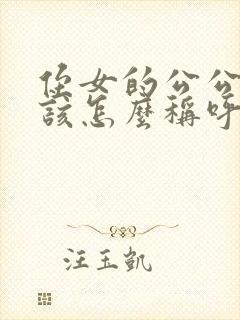 侄女的公公
該怎麼稱呼
汪玉凱